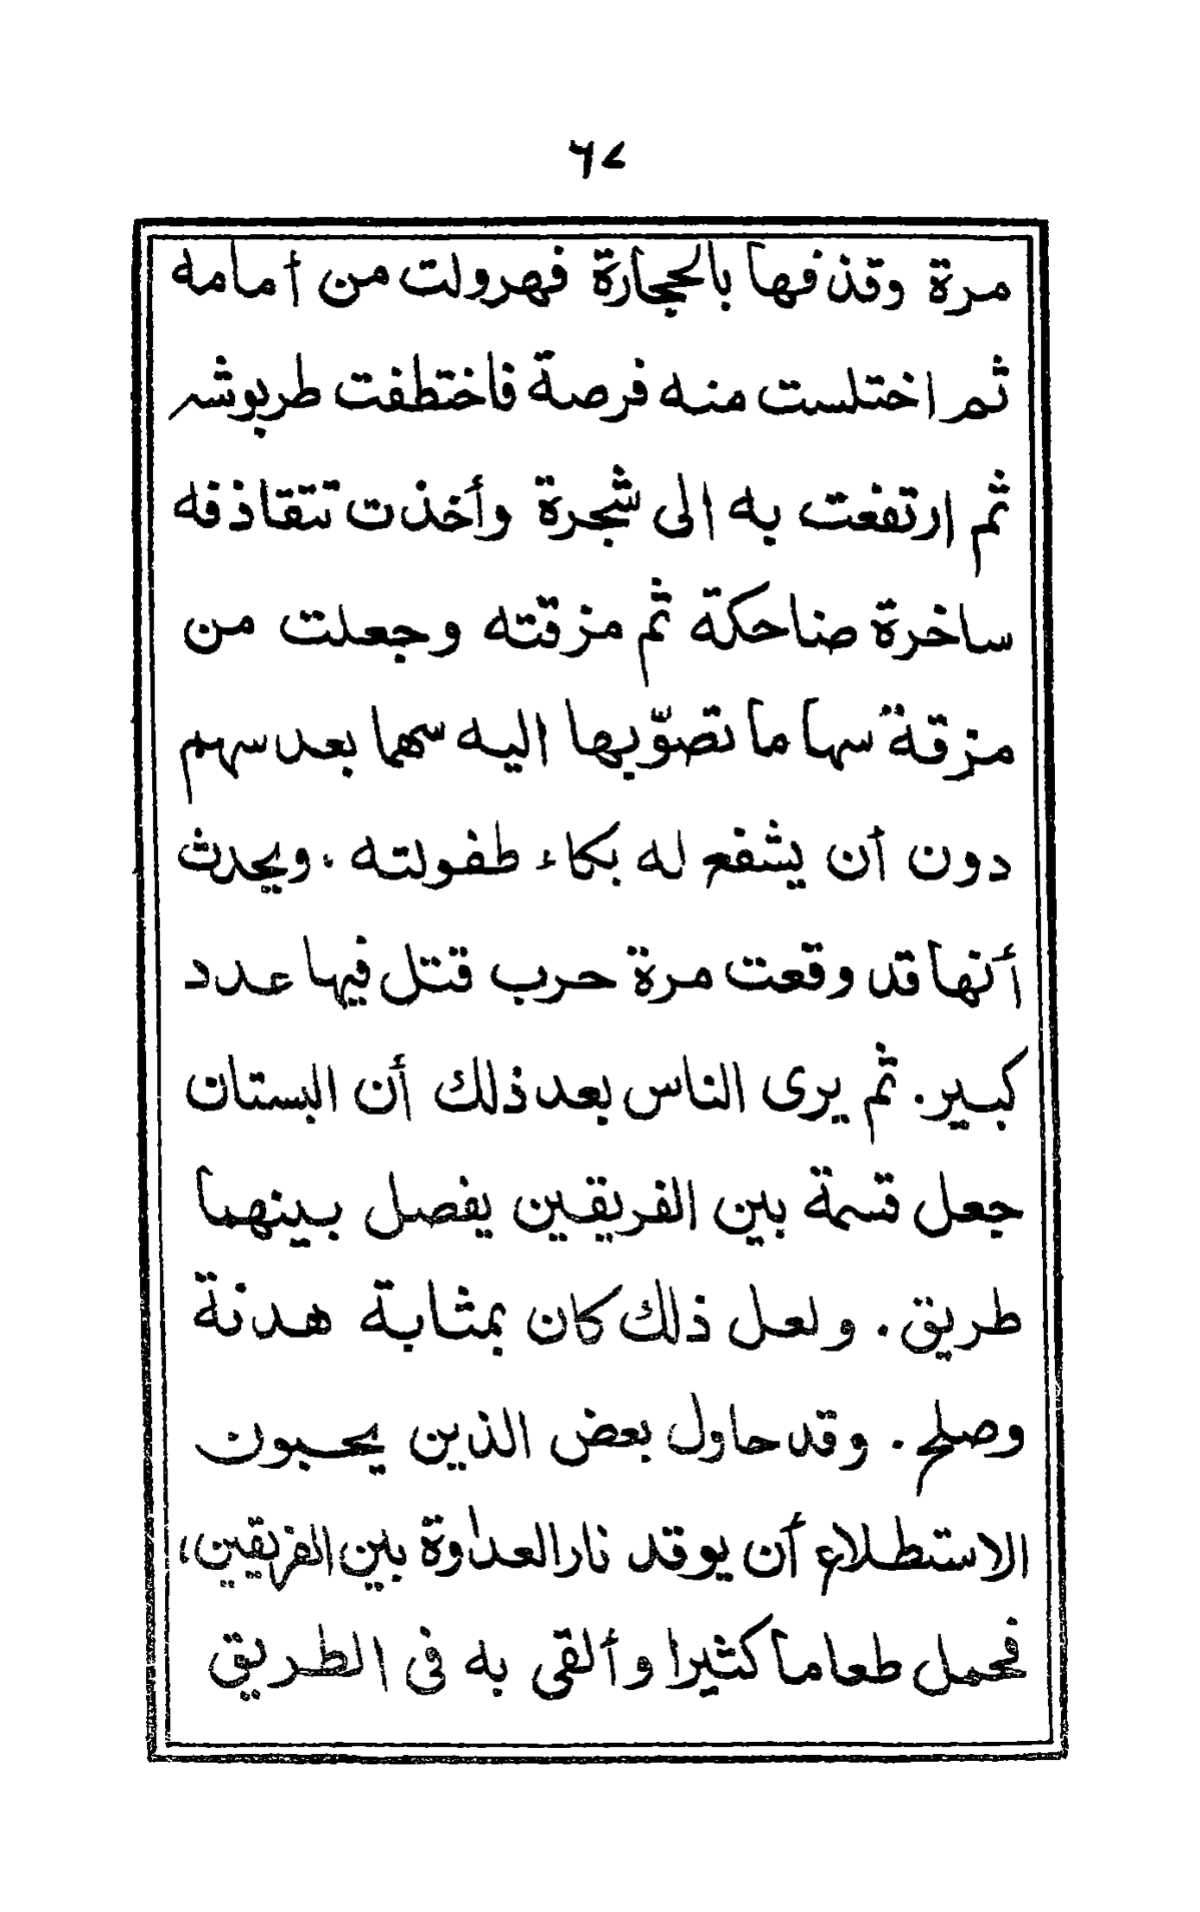 ٦٧
مرة وقذفها بالحجارة فهرولت من أمامه
ثم اختلست منه فرصة فاختطفت طربوشه
ثم ارتفعت به الى شجرة وأخذت تتقاذفه
ساخرة ضاحكة ثم مزقته وجعلت من
مزقة سهاما تصوّبها اليه سهما بعد سهم
دون أن يشفع له بكاء طفولته. ويحدث
أنها قد وقعت مرة حرب قتل فيها عدد
كبير. ثم يرى الناس بعد ذلك أن البستان
جعل قسمة بين الفريقين يفصل بينهما
طريق. ولعل ذلك كان بمثابة هدنة
وصلح. وقد حاول بعض الذين يحبون
الاستطلاع أن يوقد نار العداوة بين الفريقين،
فحمل طعاما كثيرا وألقى به فى الطريق